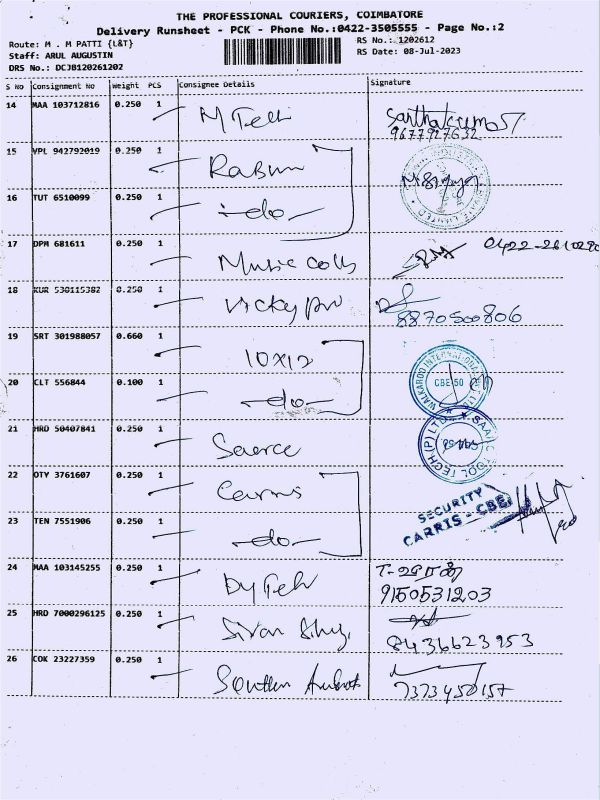 THE PROFESSIONAL COURIERS, COIMBATORE
Delivery Runsheet - PCK - Phone No.:0422-3505555 - Page No.:2
Route: M . M PATTI {L&T} RS No.: 1202612
Staff: ARUL AUGUSTIN RS Date: 08-Jul-2023
DRS No.: DCJB120261202
S NO Consignment No Weight PCS Consignee Details Signature
14 MAA 103712816 0.250 1 M Tech
9677927632
15 VPL 942792019 0.250 1
16 TUT 6510099 0.250 1 -do-
17 DPM 681611 0.250 1 Music
18 KUR 530115382 0.250 1 Vicky
8870500806
19 SRT 301988057 0.660 1 10x12
WALKAROO INTERNATIONAL
CBE 50
20 CLT 556844 0.100 1 -do-
21 HRD 50407841 0.250 1
TOOL TECH (P) LTD.
22 OTY 3761607 0.250 1
SECURITY
CARRIS - CBE
23 TEN 7551906 0.250 1 -do-
24 MAA 103145255 0.250 1
9150531203
25 HRD 7000296125 0.250 1
8436623953
26 COK 23227359 0.250 1
7373450157